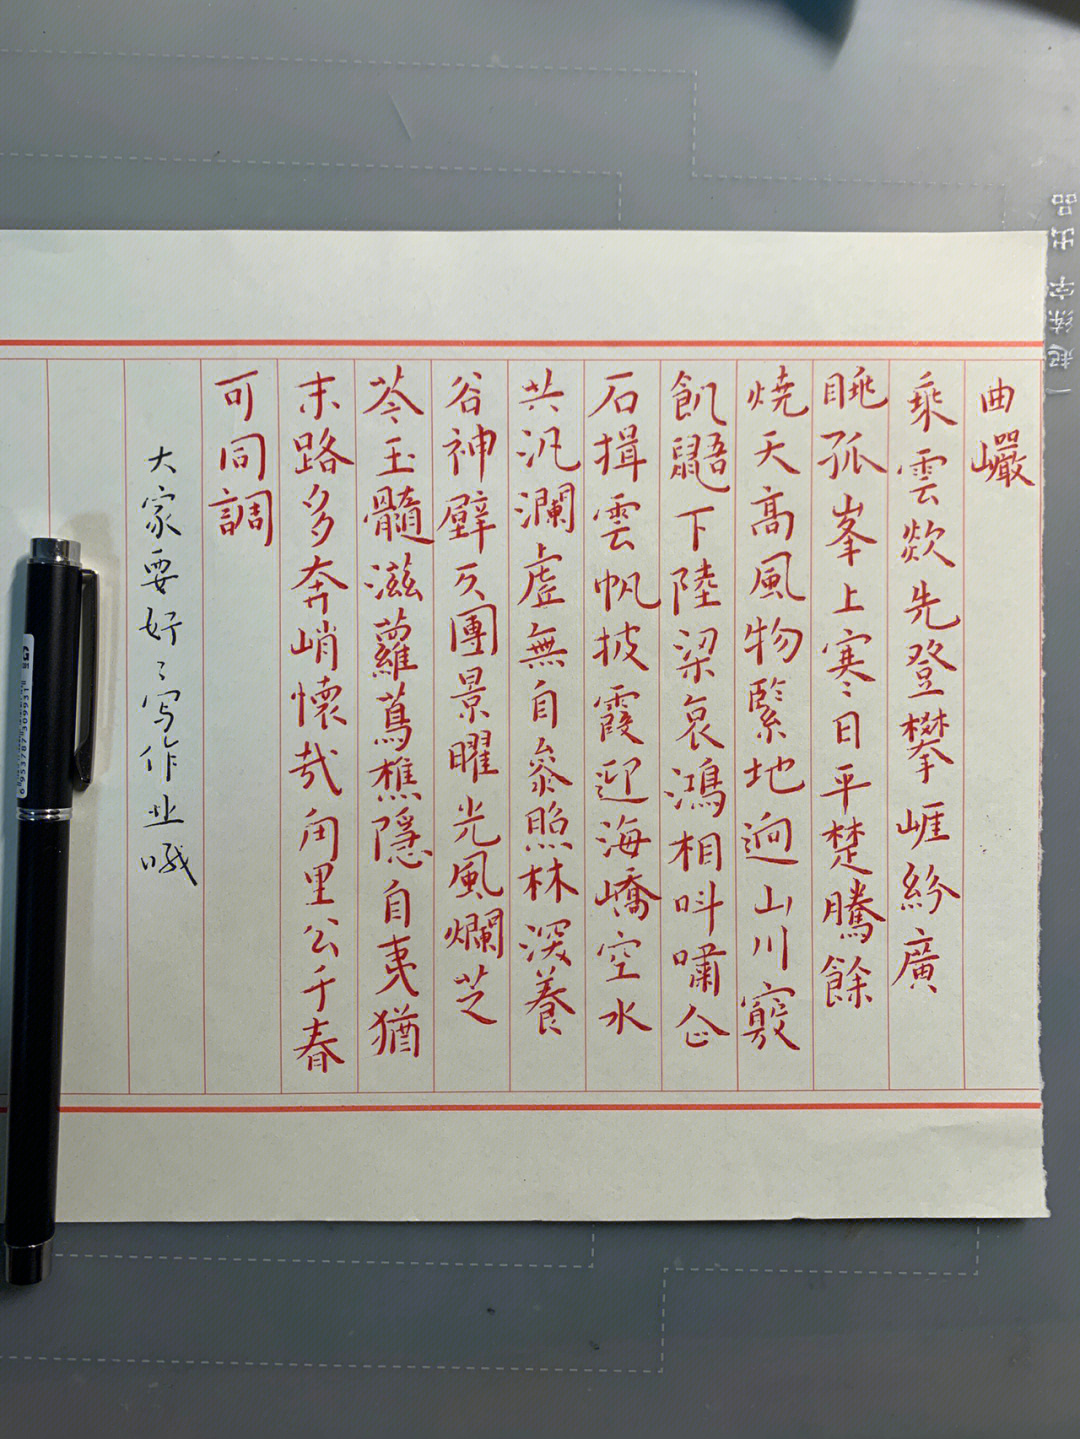 曲巖
乘雲欻先登攀崕紛廣
眺孤峯上寒日平楚騰餘
燒天高風物緊地迥山川竅
飢鼯下陸梁哀鴻相呌嘯企
石揖雲帆披霞迎海嶠空水
共汎瀾虛無自叅照林深養
谷神壁仄團景曜光風爛芝
苓玉髓滋蘿蔦樵隱自夷猶
末路多奔峭懷哉甪里公千春
可同調
大家要好々写作业哦
一起练字出品